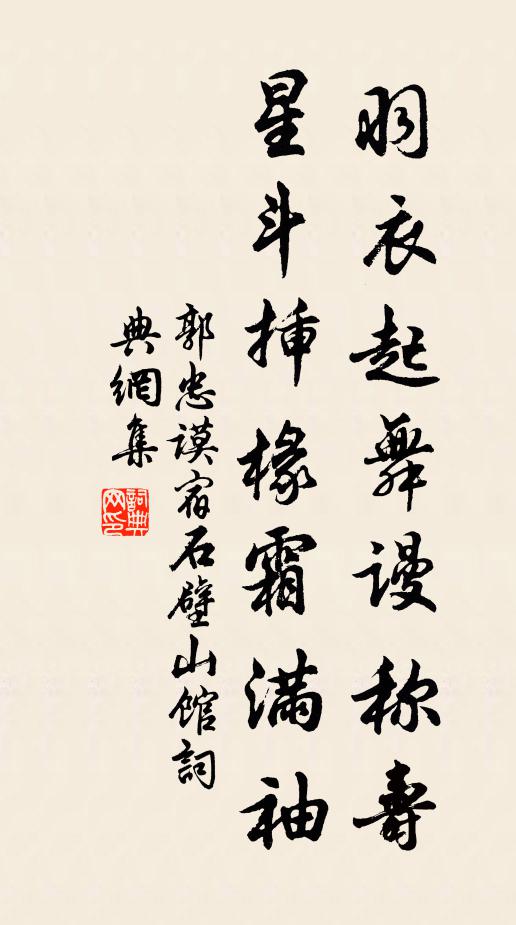 羽衣起舞谩称寿
星斗插椽霜满袖
郭忠谟宿石壁山馆詞
典網集
詞典網印